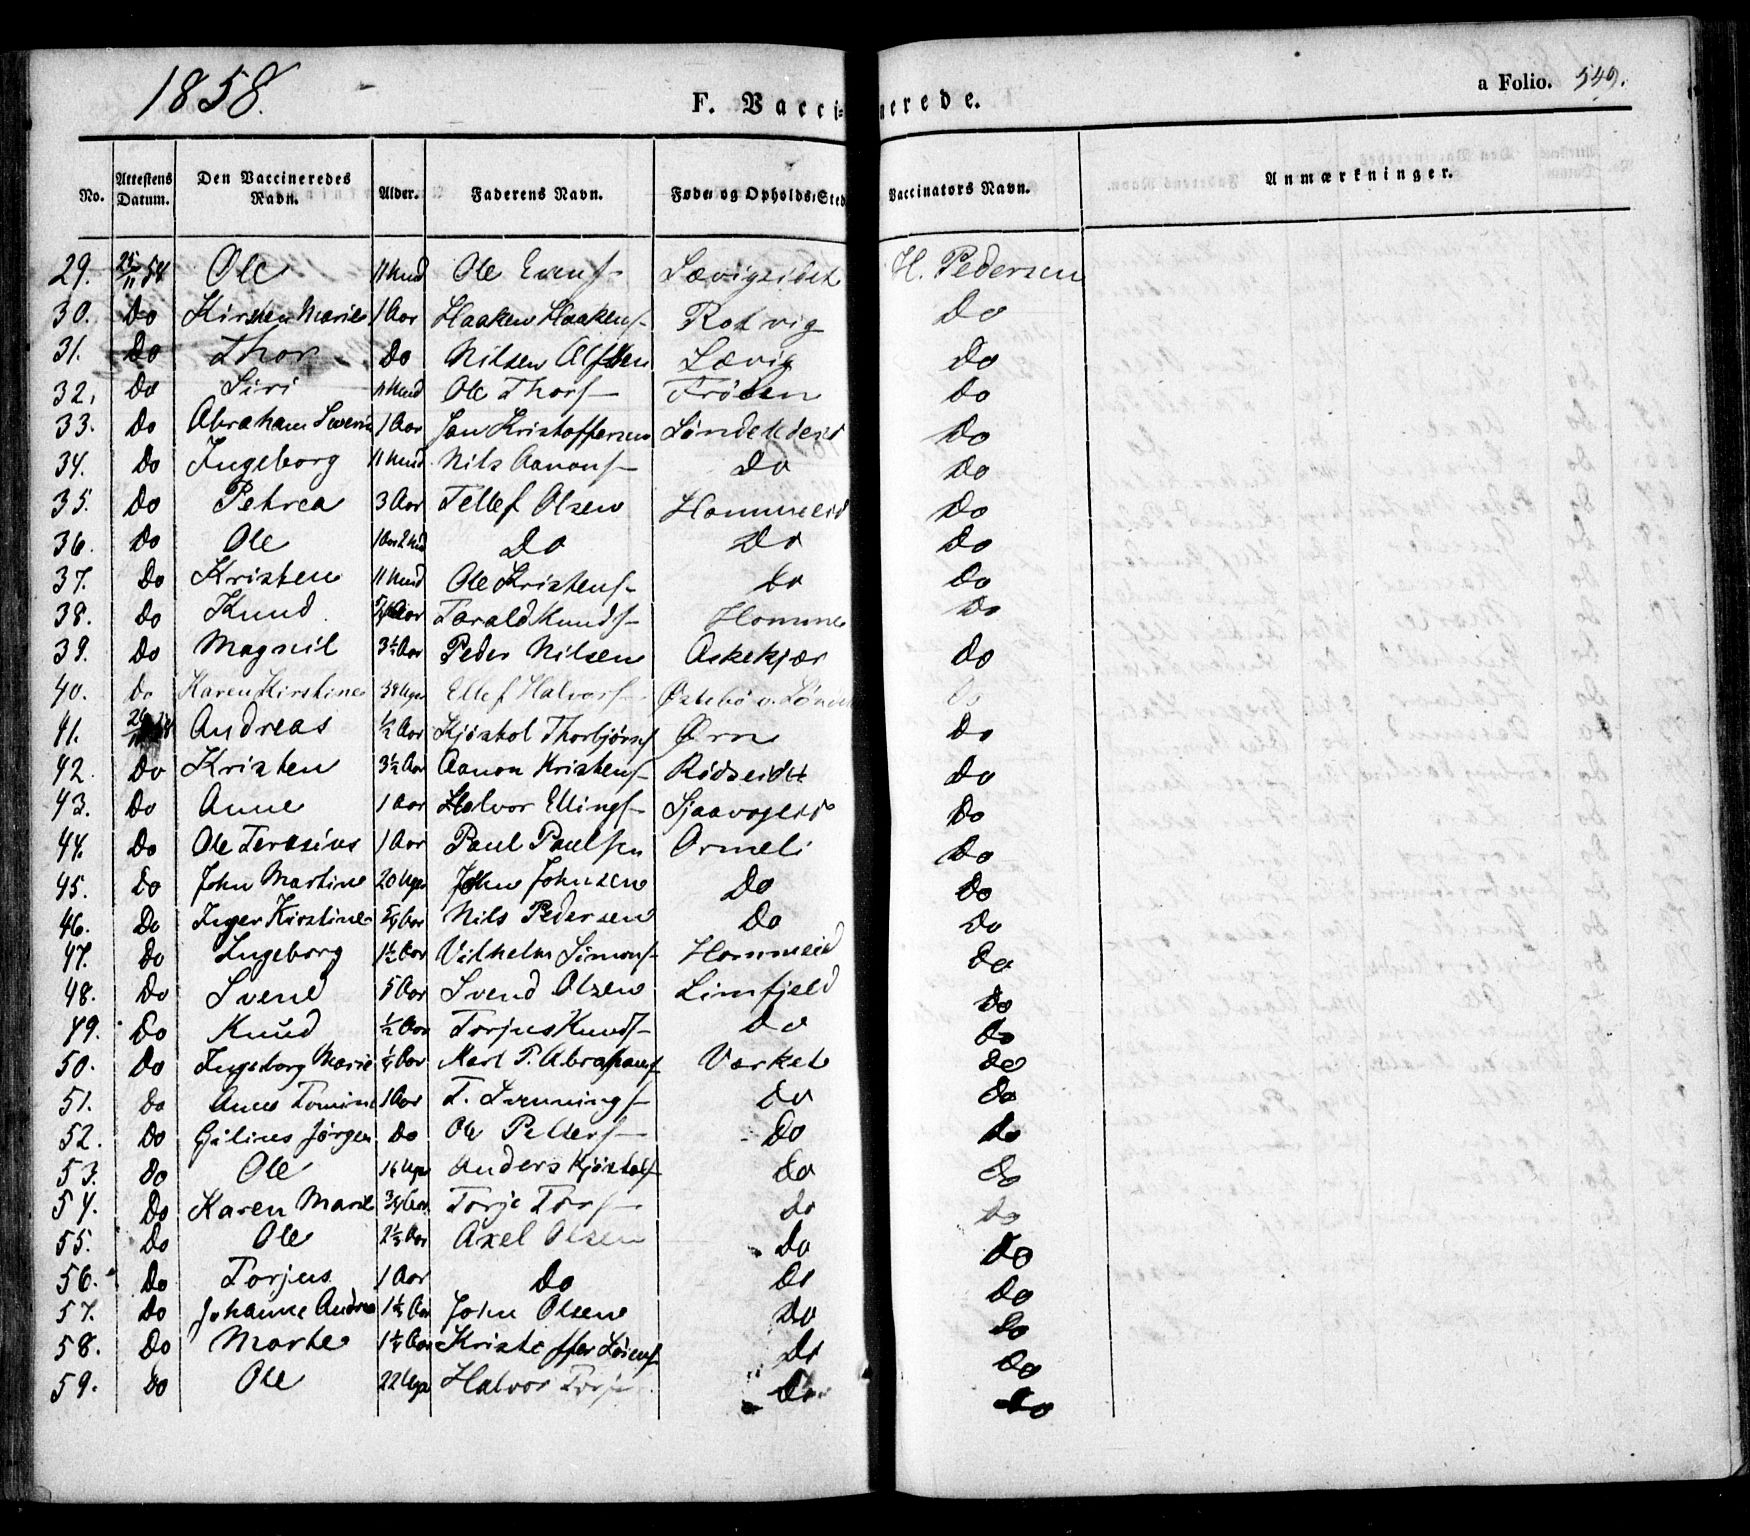 1858.
F. Vaccinerede.
a Folio. 549.
No. Attestens Datum. Den Vaccineredes Navn. Alder. Faderens Navn. Føde- og Opholds-Sted Vaccinators Navn. Anmærkninger.
29. 25/11 58 Ole 11 Mnd Ole Evens- Lævigseidet H. Pedersen
30. Do Kirsten Marie 1 Aar Haaken Haakens- Rotvig Do
31. Do Thor Do Nilsen Alfsen Lævig Do
32. Do Siri 11 Mnd Ole Thors- Frösen Do
33. Do Abraham Severin 1 Aar Jan Kristoffersen Søndeledeid Do
34. Do Ingeborg 11 Mnd Nils Aanons- Do Do
35. Do Petrea 3 Aar Tellef Olsen Hommeeid Do
36. Do Ole 1 Aar 2 Mnd Do Do Do
37. Do Kristen 11 Mnd Ole Kristens- Do Do
38. Do Knud Aar Tarald Knuds- Homme Do
39. Do Magnil 3½ Aar Peder Nilsen Askekjær Do
40. Do Karen Kirstine 39 Uger Ellef Halvors- Østebö v. Do
41. 26/11 58 Andreas ½ Aar Kjöstol Thorbjörns- Ørn Do
42. Do Kristen 3½ Aar Aanon Kristens- Rödseidet Do
43. Do Anne 1 Aar Halvor Ellings- Sjaavogeid Do
44. Do Ole Terasius 1 Aar Paul Paulsen Ormeli Do
45. Do John Martine 20 Uger John Johnsen Do Do
46. Do Inger Kirstine 5/4 Aar Nils Pedersen Do Do
47. Do Ingeborg 1½ Aar Vilhelm Simons- Hommeeid Do
48. Do Svend 5 Aar Svend Olsen Limfjeld Do
49. Do Knud ½ Aar Torjus Knuds- Do Do
50. Do Ingeborg Marie ¼ Aar Karl P. Abrahams- Værket Do
51. Do Anne Tomine 1 Aar T. Svennings- Do Do
52. Do Gilius Jörgen Do Ole Pedders- Do Do
53. Do Ole 16 Uger Anders Kjöstols- Do Do
54. Do Karen Marie 3/4 Aar Torje Tors- Do Do
55. Do Ole 2½ Aar Axel Olsen Do Do
56. Do Torjus 1 Aar Do Do Do
57. Do Johanne Andrea 1¼ Aar John Olsen Do Do
58. Do Marte 1¼ Aar Kristoffer Do Do
59. Do Ole 22 Uger Halvor Do Do